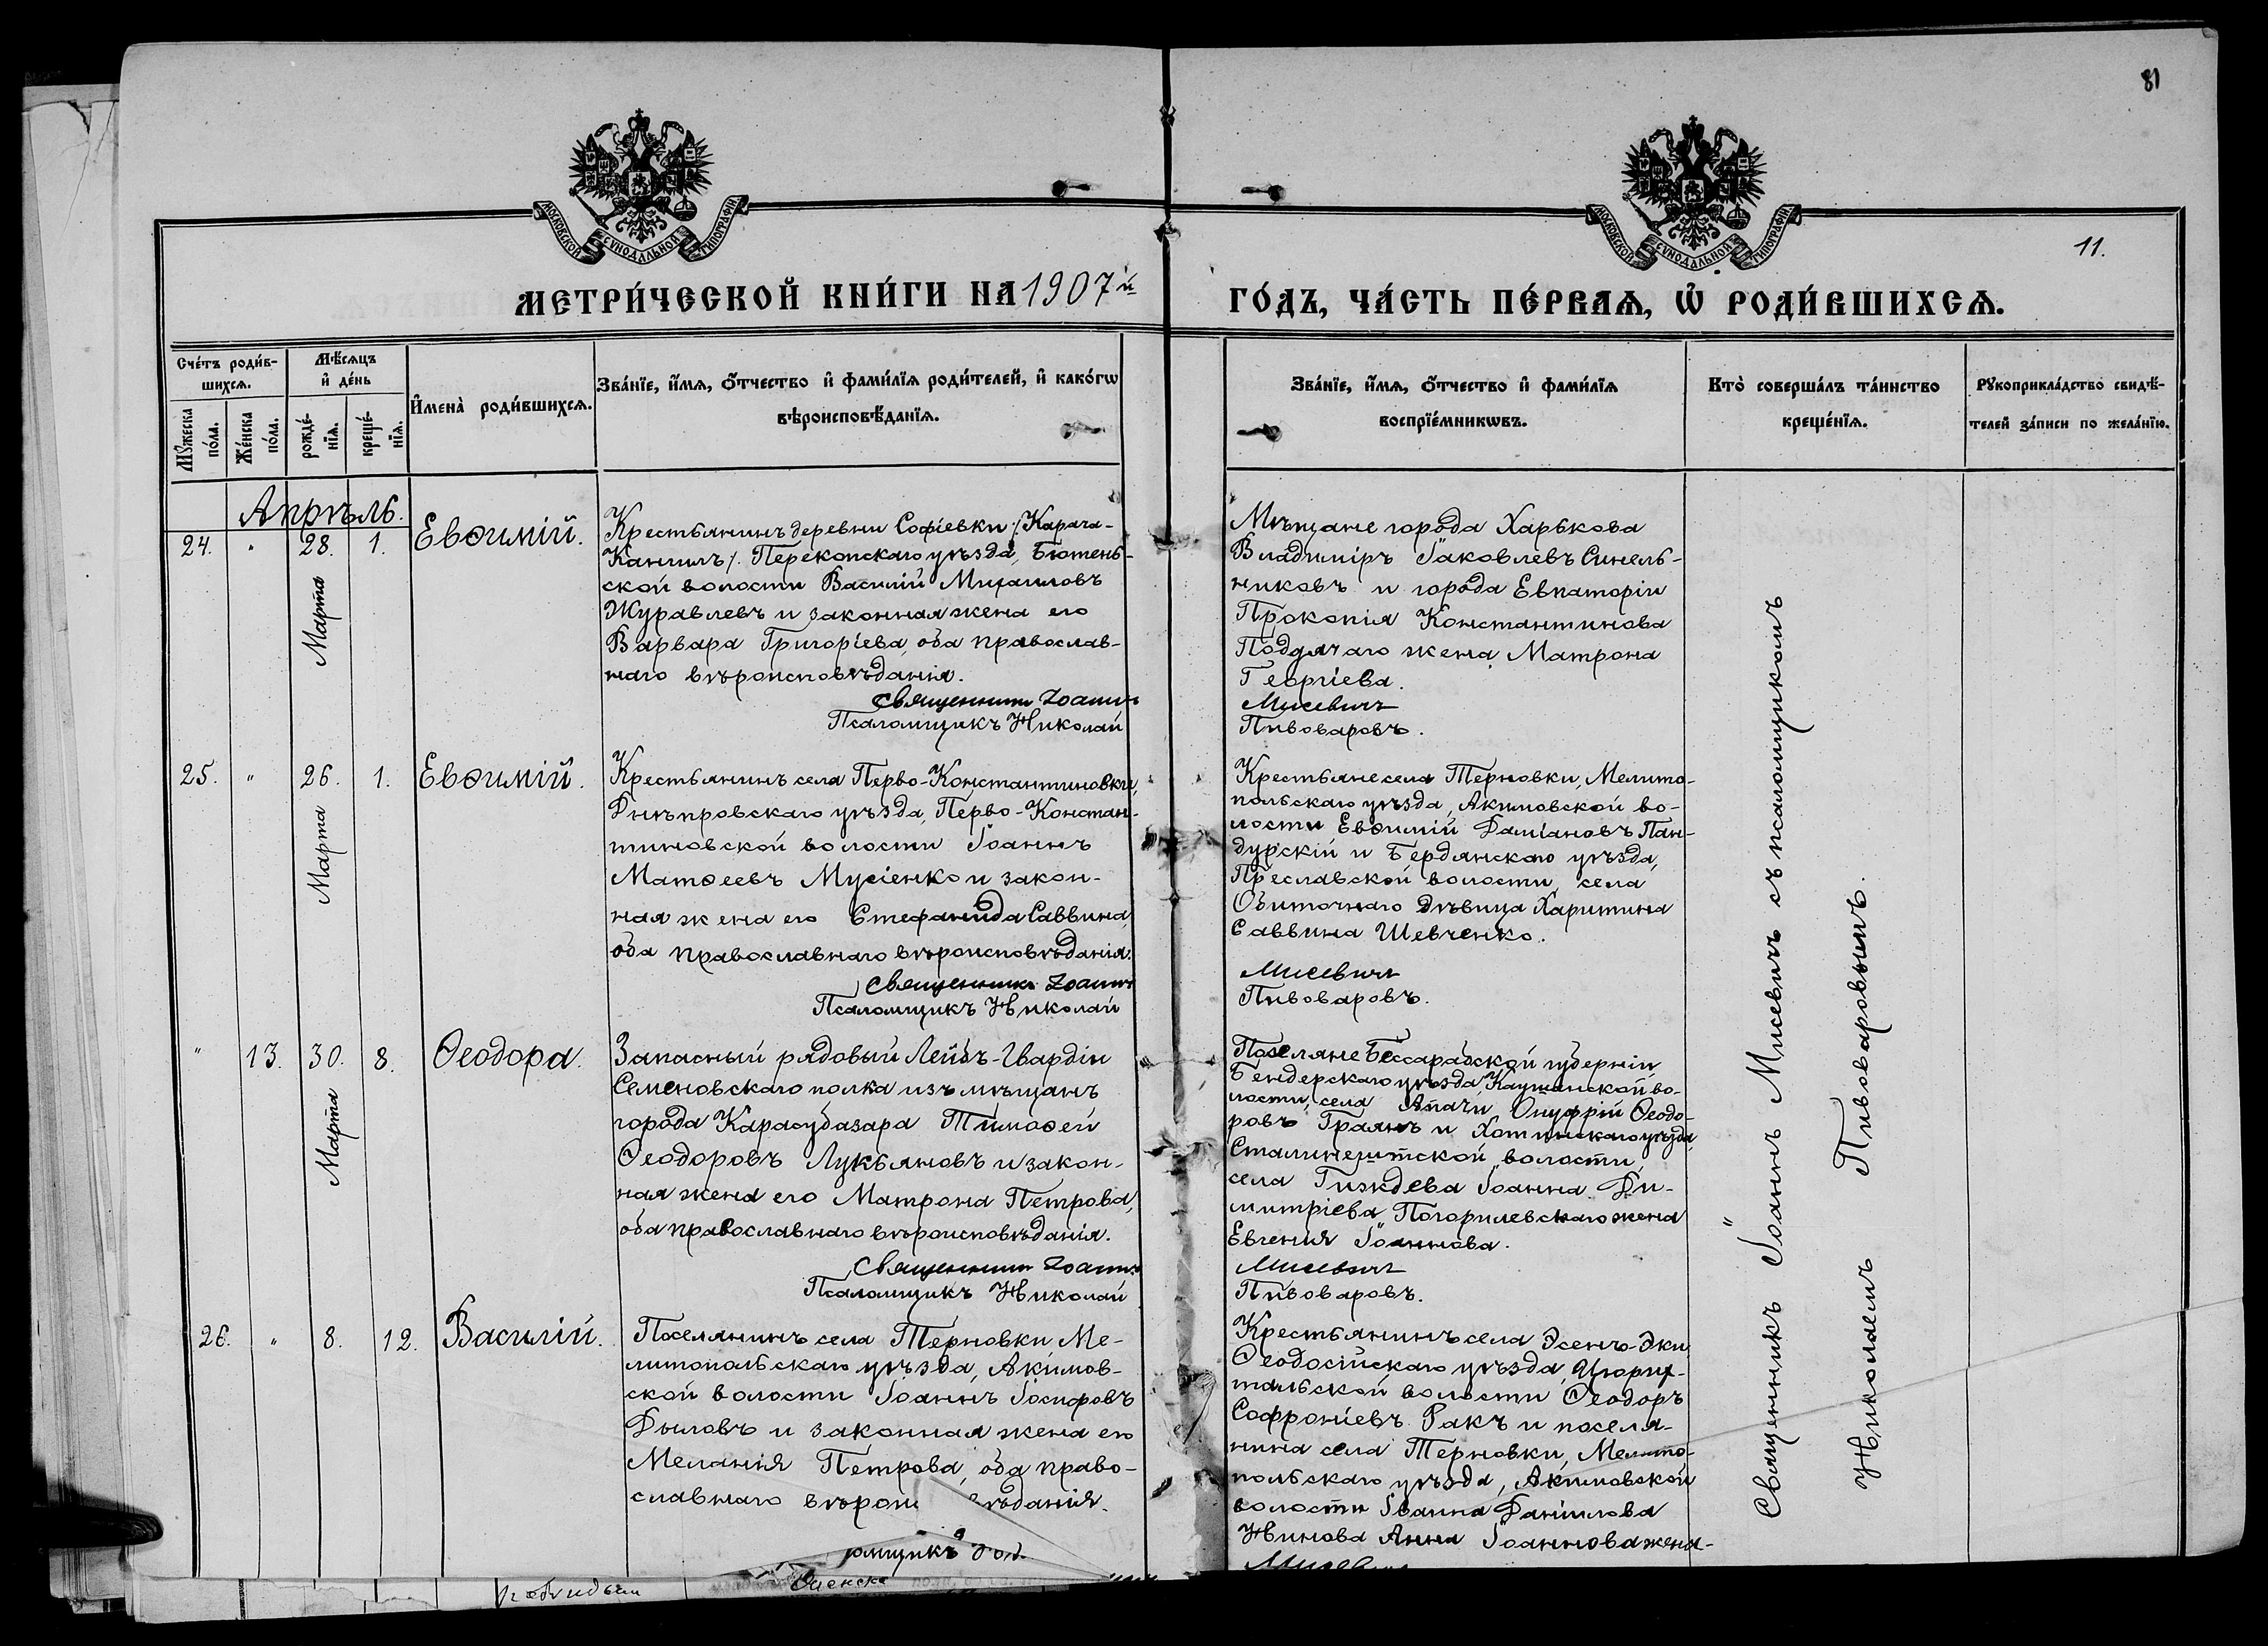 81
МОСКОВСКОЙ СѴНОДАЛЬНОЙ ТИПОГРАФІИ
МОСКОВСКОЙ СѴНОДАЛЬНОЙ ТИПОГРАФІИ
11.
МЕТРИ́ЧЕСКОЙ КНИ́ГИ НА 1907й
ГО́ДЪ, ЧА́СТЬ ПЕ́РВАѦ, Ѡ҆ РОДИ́ВШИХСѦ.
Сче́тъ роди́в-
шихсѧ.
Мꙋ́жеска
по́ла.
Же́нска
по́ла.
Мѣ́сѧцъ
и҆ де́нь
рожде́-
нїѧ.
креще́-
нїѧ.
И҆мена̀ роди́вшихсѧ.
Зва́нїе, и҆́мѧ, ѻ҆́тчество и҆ фами́лїѧ роди́телей, и҆ како́гѡ
вѣроисповѣ́данїѧ.
Зва́нїе, и҆́мѧ, ѻ҆́тчество и҆ фами́лїѧ
воспрїе́мникѡвъ.
Кто̀ соверша́лъ та́инство
креще́нїѧ.
Рꙋкоприкла́дство свидѣ́-
телей за́писи по жела́нїю.
Апрѣль.
24. " 28. 1.
Марта
Евѳимій.
Крестьянинъ деревни Софіевки /. Карача-
Кангилъ /. Перекопскаго уѣзда, Бютень-
ской волости Василій Михаиловъ
Журавлевъ и законная жена его
Варвара Григоріева, оба православ-
наго вѣроисповѣданія.
Священникъ Іоаннъ
Псаломщикъ Николай
Мѣщане города Харькова
Владиміръ Іаковлевъ Синель-
никовъ и города Евпаторіи
Прокопія Константинова
Поддячаго жена Матрона
Георгіева.
Мисевичъ
Пивоваровъ.
25. " 26. 1.
Марта
Евѳимій.
Крестьянинъ села Перво-Константиновки,
Днѣпровскаго уѣзда, Перво-Констан-
тиновской волости Іоаннъ
Матѳеевъ Мусіенко и закон-
ная жена его Стефанида Саввина,
оба православнаго вѣроисповѣданія.
Священникъ Іоаннъ
Псаломщикъ Николай
Крестьяне села Терновки, Мелито-
польскаго уѣзда, Акимовской во-
лости Евѳимій Даміановъ Пан-
дурскій и Бердянскаго уѣзда,
Преславской волости, села
Обиточнаго дѣвица Харитина
Саввина Шевченко.
Мисевичъ
Пивоваровъ.
" 13. 30. 8.
Марта
Ѳеодора.
Запасный рядовый Лейбъ-Гвардіи
Семеновскаго полка изъ мѣщанъ
города Карасубазара Тимоѳей
Ѳеодоровъ Лукьяновъ и закон-
ная жена его Матрона Петрова,
оба православнаго вѣроисповѣданія.
Священникъ Іоаннъ
Псаломщикъ Николай
Поселяне Бессарабской губерніи
Бендерскаго уѣзда Каушанской во-
лости, села Онуфрій Ѳеодо-
ровъ и Хотинскаго уѣзда,
волости,
села Гиждева Іоанна Ди-
митріева Погорилевскаго жена
Евгенія Іоаннова.
Мисевичъ
Пивоваровъ.
26. " 8. 12.
Василій.
Поселянинъ села Терновки, Ме-
литопольскаго уѣзда, Акимов-
ской волости Іоаннъ Іосифовъ
Дыловъ и законная жена его
Меланія Петрова, оба право-
славнаго вѣрои вѣданія.
омщикъ
Крестьянинъ села Эсенъ-Эки
Ѳеодосійскаго уѣзда, Цюрих-
тальской волости Ѳеодоръ
Софроніевъ Ракъ и поселя-
нина села Терновки, Мелито-
польскаго уѣзда, Акимовской
волости Іоанна Даніилова
Нинова Анна Іоаннова жена.
Мисевичъ
Священникъ Іоаннъ Мисевичъ съ псаломщикомъ
Николаемъ Пивоваровымъ.